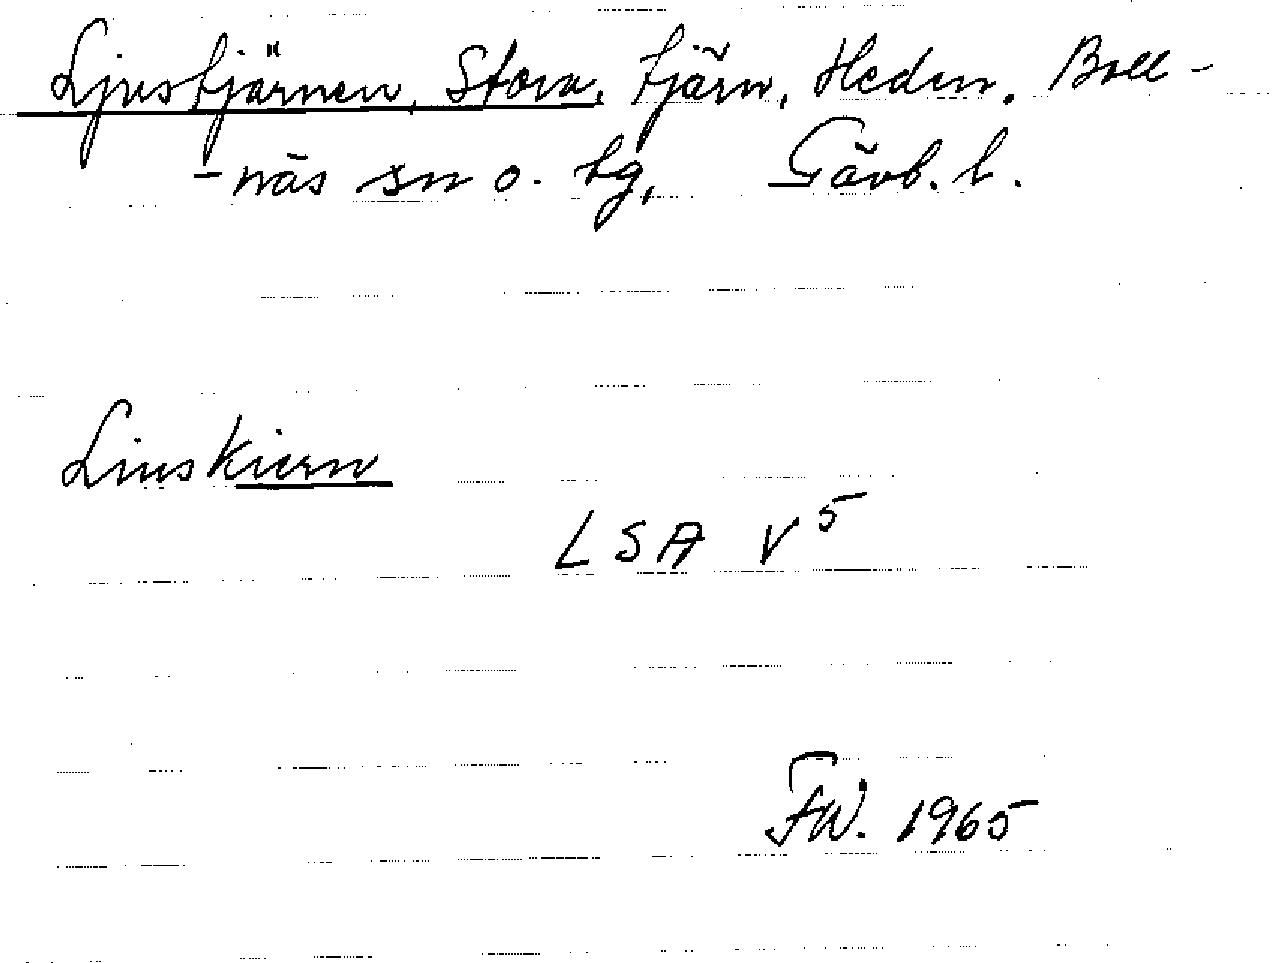 Ljustjärnen, Stora, tjärn, Heden, Boll-
-näs sn o. tg, Gävb. l.
Liuskiern
LSA V5
FW. 1965